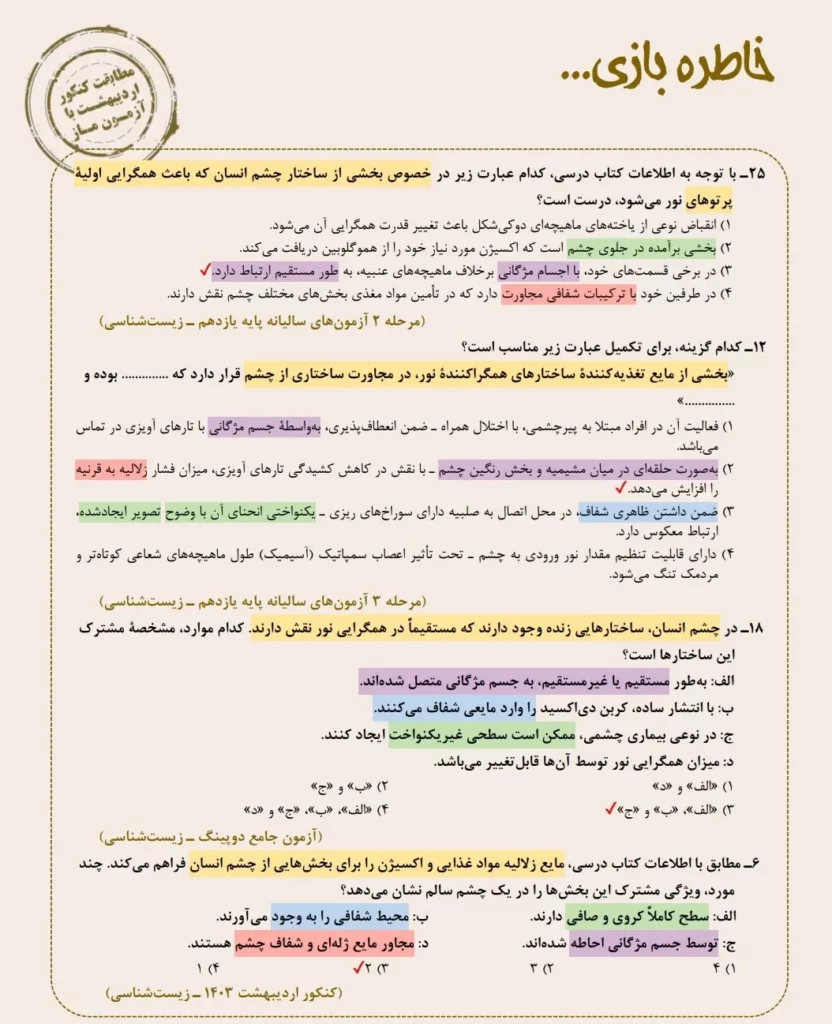 خاطره بازی...
مطابقت کنکور
اردیبهشت با
آزمون ماز
۲۵ـ با توجه به اطلاعات کتاب درسی، کدام عبارت زیر در خصوص بخشی از ساختار چشم انسان که باعث همگرایی اولیهٔ
پرتوهای نور می‌شود، درست است؟
۱) انقباض نوعی از یاخته‌های ماهیچه‌ای دوکی‌شکل باعث تغییر قدرت همگرایی آن می‌شود.
۲) بخشی برآمده در جلوی چشم است که اکسیژن مورد نیاز خود را از هموگلوبین دریافت می‌کند.
۳) در برخی قسمت‌های خود، با اجسام مژگانی برخلاف ماهیچه‌های عنبیه، به طور مستقیم ارتباط دارد.✓
۴) در طرفین خود با ترکیبات شفافی مجاورت دارد که در تأمین مواد مغذی بخش‌های مختلف چشم نقش دارند.
(مرحله ۲ آزمون‌های سالیانه پایه یازدهم ـ زیست‌شناسی)
۱۲ـ کدام گزینه، برای تکمیل عبارت زیر مناسب است؟
«بخشی از مایع تغذیه‌کنندهٔ ساختارهای همگراکنندهٔ نور، در مجاورت ساختاری از چشم قرار دارد که ............. بوده و
...............»
۱) فعالیت آن در افراد مبتلا به پیرچشمی، با اختلال همراه ـ ضمن انعطاف‌پذیری، به‌واسطهٔ جسم مژگانی با تارهای آویزی در تماس
می‌باشد.
۲) به‌صورت حلقه‌ای در میان مشیمیه و بخش رنگین چشم ـ با نقش در کاهش کشیدگی تارهای آویزی، میزان فشار زلالیه به قرنیه
را افزایش می‌دهد.✓
۳) ضمن داشتن ظاهری شفاف، در محل اتصال به صلبیه دارای سوراخ‌های ریزی ـ یکنواختی انحنای آن با وضوح تصویر ایجادشده،
ارتباط معکوس دارد.
۴) دارای قابلیت تنظیم مقدار نور ورودی به چشم ـ تحت تأثیر اعصاب سمپاتیک (آسیمیک) طول ماهیچه‌های شعاعی کوتاه‌تر و
مردمک تنگ می‌شود.
(مرحله ۳ آزمون‌های سالیانه پایه یازدهم ـ زیست‌شناسی)
۱۸ـ در چشم انسان، ساختارهایی زنده وجود دارند که مستقیماً در همگرایی نور نقش دارند. کدام موارد، مشخصهٔ مشترک
این ساختارها است؟
الف: به‌طور مستقیم یا غیرمستقیم، به جسم مژگانی متصل شده‌اند.
ب: با انتشار ساده، کربن دی‌اکسید را وارد مایعی شفاف می‌کنند.
ج: در نوعی بیماری چشمی، ممکن است سطحی غیریکنواخت ایجاد کنند.
د: میزان همگرایی نور توسط آن‌ها قابل‌تغییر می‌باشد.
۱) «الف» و «د» ۲) «ب» و «ج»
۳) «الف»، «ب» و «ج»✓ ۴) «الف»، «ب»، «ج» و «د»
(آزمون جامع دوپینگ ـ زیست‌شناسی)
۶ـ مطابق با اطلاعات کتاب درسی، مایع زلالیه مواد غذایی و اکسیژن را برای بخش‌هایی از چشم انسان فراهم می‌کند. چند
مورد، ویژگی مشترک این بخش‌ها را در یک چشم سالم نشان می‌دهد؟
الف: سطح کاملاً کروی و صافی دارند. ب: محیط شفافی را به وجود می‌آورند.
ج: توسط جسم مژگانی احاطه شده‌اند. د: مجاور مایع ژله‌ای و شفاف چشم هستند.
۱) ۴ ۲) ۳ ۳) ۲✓ ۴) ۱
(کنکور اردیبهشت ۱۴۰۳ ـ زیست‌شناسی)